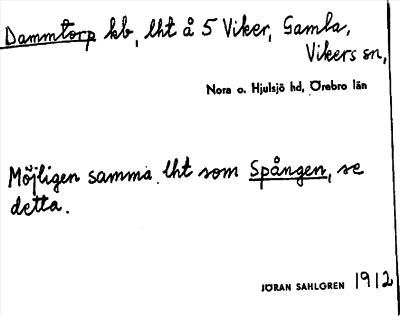 Dammtorp kb, lht å 5 Viker, Gamla,
Vikers sn,
Nora o. Hjulsjö hd, Örebro län
Möjligen samma lht som Spången, se
detta.
JÖRAN SAHLGREN 1912